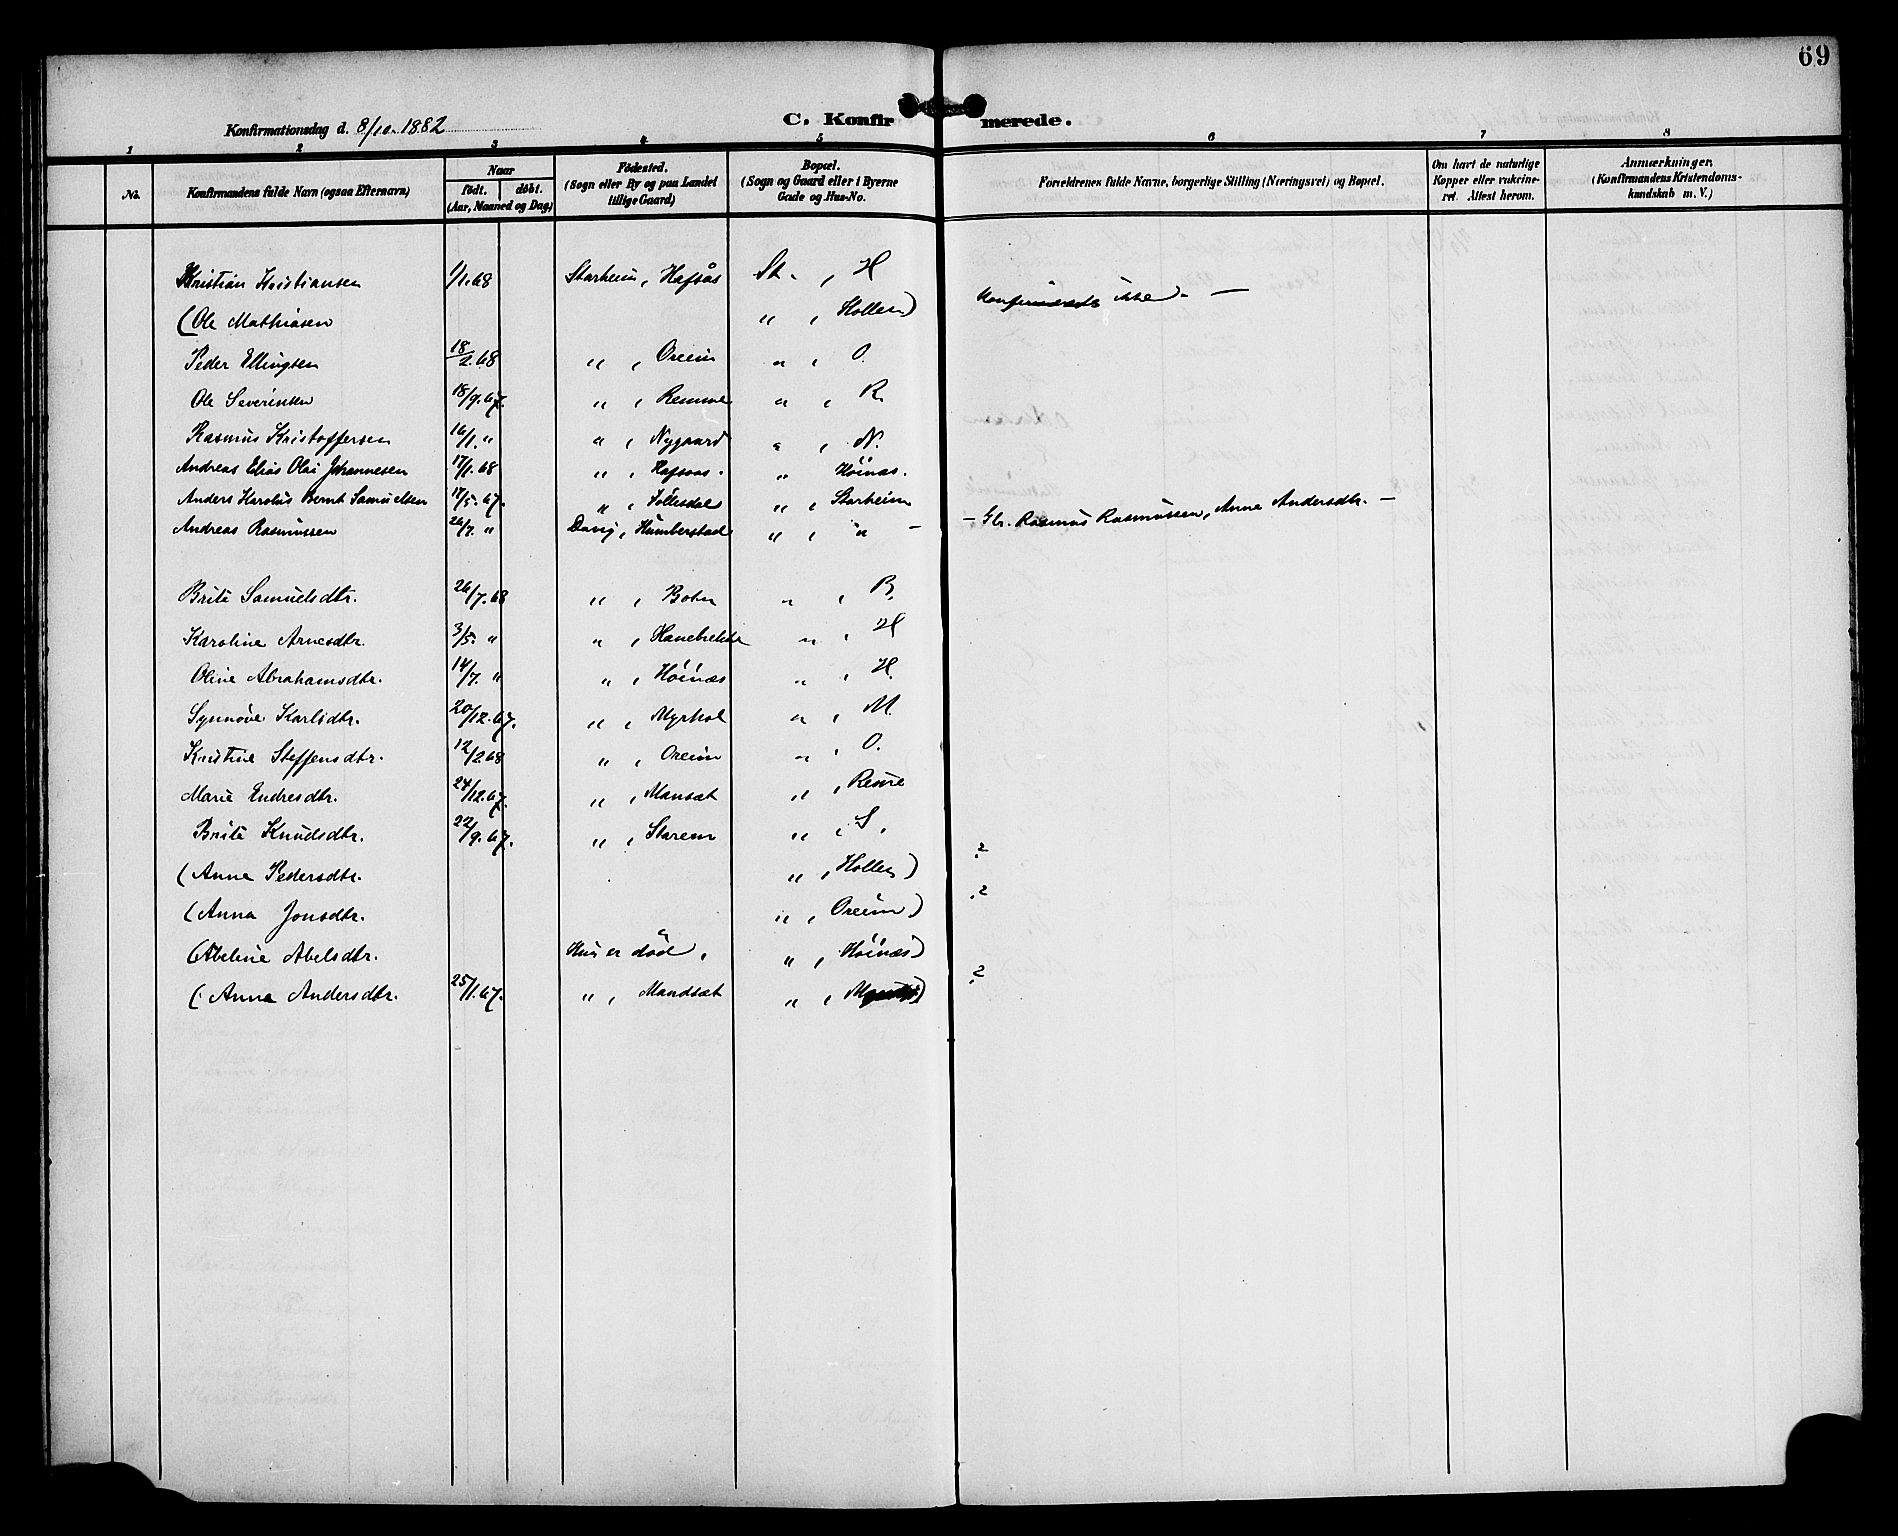 69
Konfirmationsdag d. 8/10. 1882
C. Konfirmerede.
1 2 3 4 5 6 7 8
No.
Konfirmandens fulde Navn (ogsaa Efternavn)
Naar
født. døbt.
(Aar, Maaned og Dag)
Fødested.
(Sogn eller By og paa Landet
tillige Gaard)
Bopæl.
(Sogn og Gaard eller i Byerne
Gade og Hus-No.
Forældrenes fulde Navne, borgerlige Stilling (Næringsvei) og Bopæl.
Om havt de naturlige
Kopper eller vakcine-
ret. Attest herom.
Anmærkninger.
(Konfirmandens Kristendoms-
kundskab m. V.)
Kristian Kristiansen 1/1.68 Starheim, Hafsås St. , H
(Ole Mathiasen " , Hollen) Konfirmeredes ikke. —
Peder Ellingsen 18/2.68 " , Oreim " , O.
Ole Severinsen 18/9.67. " , Remme " , R.
Rasmus Kristoffersen 16/1. " " , Nygaard " , N.
Andreas Elias Olai Johannesen 17/1.68 " , Hafsaas. " Höinæs.
Anders Karolus Bernt Samuelsen 17/5.67. " ,Föllesdal " , Starheim
Andreas Rasmussen 26/7. " Davig, Humberstad " , " — — Gbr. Rasmus Rasmussen, Anna Andersdtr. —
Brite Samuelsdtr. 26/7.68 " , Boten " , B.
Karoline Arnesdtr. 3/5. " " , Hanebrekke " , H
Oline Abrahamsdtr. 14/7. " " , Höinæs " , H.
Synnöve Karlsdtr. 20/12.67. " , Myrhol " , M.
Kristine Steffensdtr. 12/2 68 " , Oreim " , O.
Marie Endresdtr. 24/12.67. " , Mansæt " , Reme
Brite Knudsdtr. 22/9.67. " , Starem " , S.
(Anne Pedersdtr. " , Hollen) ?
(Anna Jonsdtr. " , Oreim) ?
(Abeline Abelsdtr. Hun er död, " , Höinæs)
(Anna Andersdtr. 25/1.67. " , Mandsæt " , ?